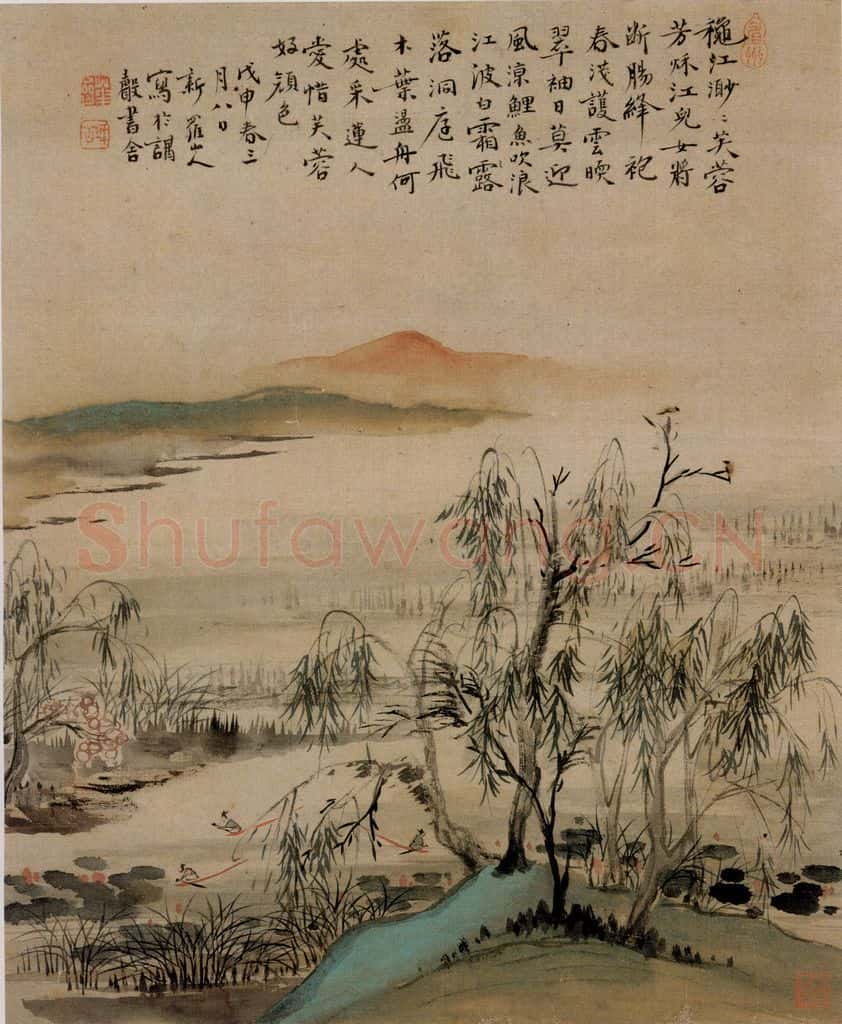 穐江渺〻芙蓉
芳秌江兒女將
断腸絳袍
春浅護雲暖
翠袖日莫迎
風涼鯉魚吹浪
江波白霜露
落洞庭飛
木葉盪舟何
處采蓮人
愛惜芙蓉
好顔色
戊申春三
月八日
新羅山人
寫於講
聲書舍
Shufawang.CN